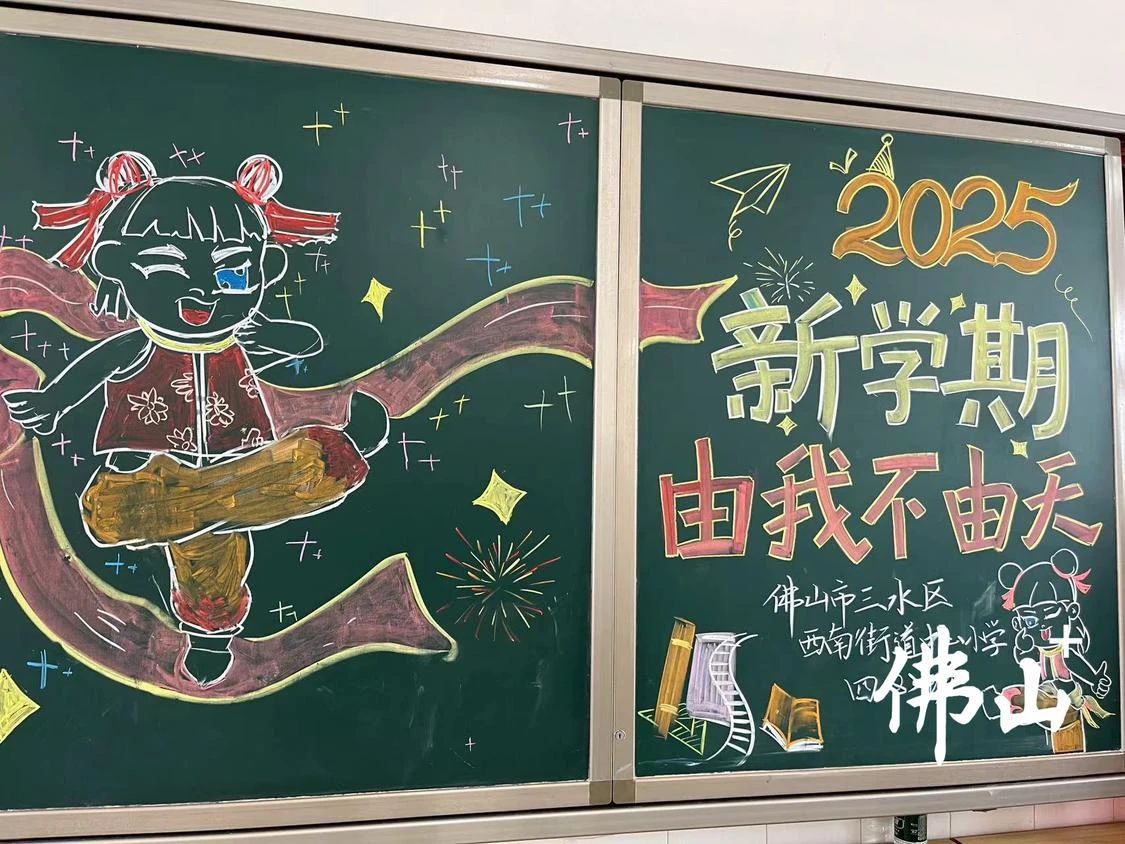 2025
新学期
由我不由天
佛山市三水区
西南街道 小学
四
佛山